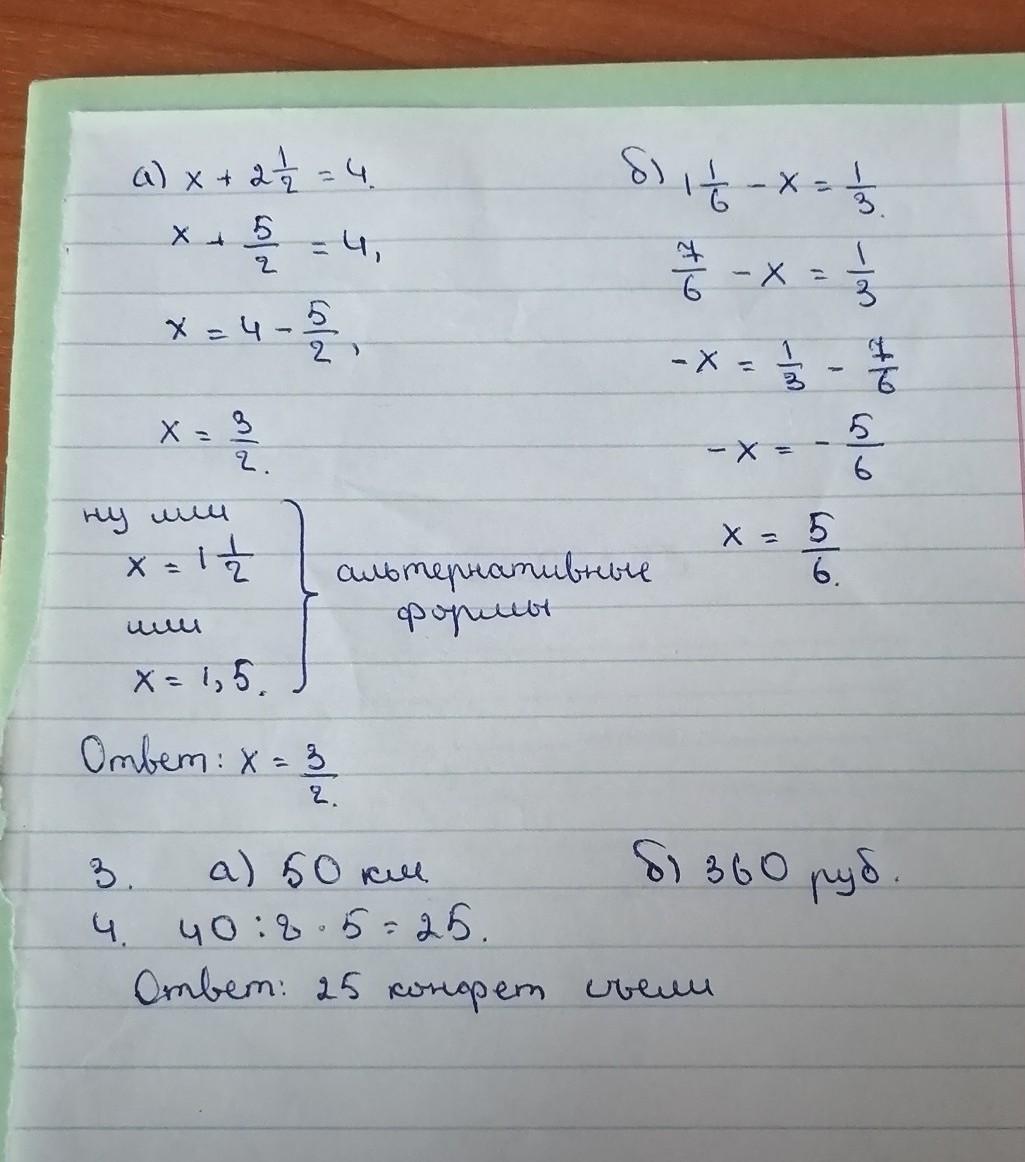 а) x + 2 1/2 = 4.
x + 5/2 = 4,
x = 4 - 5/2,
x = 3/2.
ну или
x = 1 1/2
или
x = 1,5.
альтернативные
формы
Ответ: x = 3/2.
б) 1 1/6 - x = 1/3.
7/6 - x = 1/3
-x = 1/3 - 7/6
-x = -5/6
x = 5/6.
3. а) 50 км б) 360 руб.
4. 40 : 8 · 5 = 25.
Ответ: 25 конфрет съели